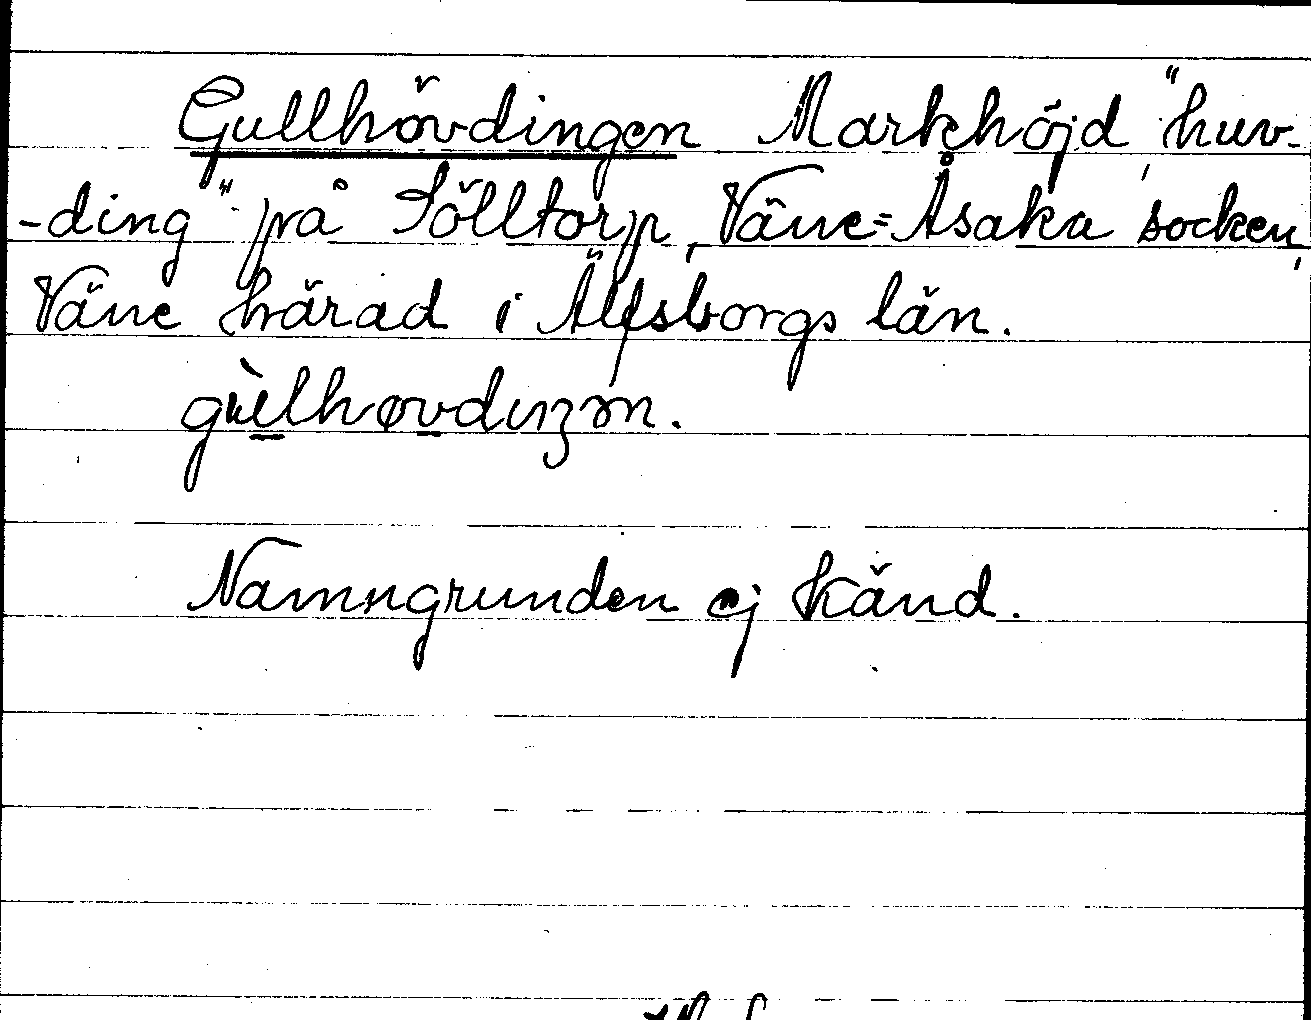 Gullhövdingen Markhöjd, "huv-
-ding" på Sölltorp, Väne=Åsaka socken,
Väne härad i Älfsborgs län.
Namngrunden ej känd.